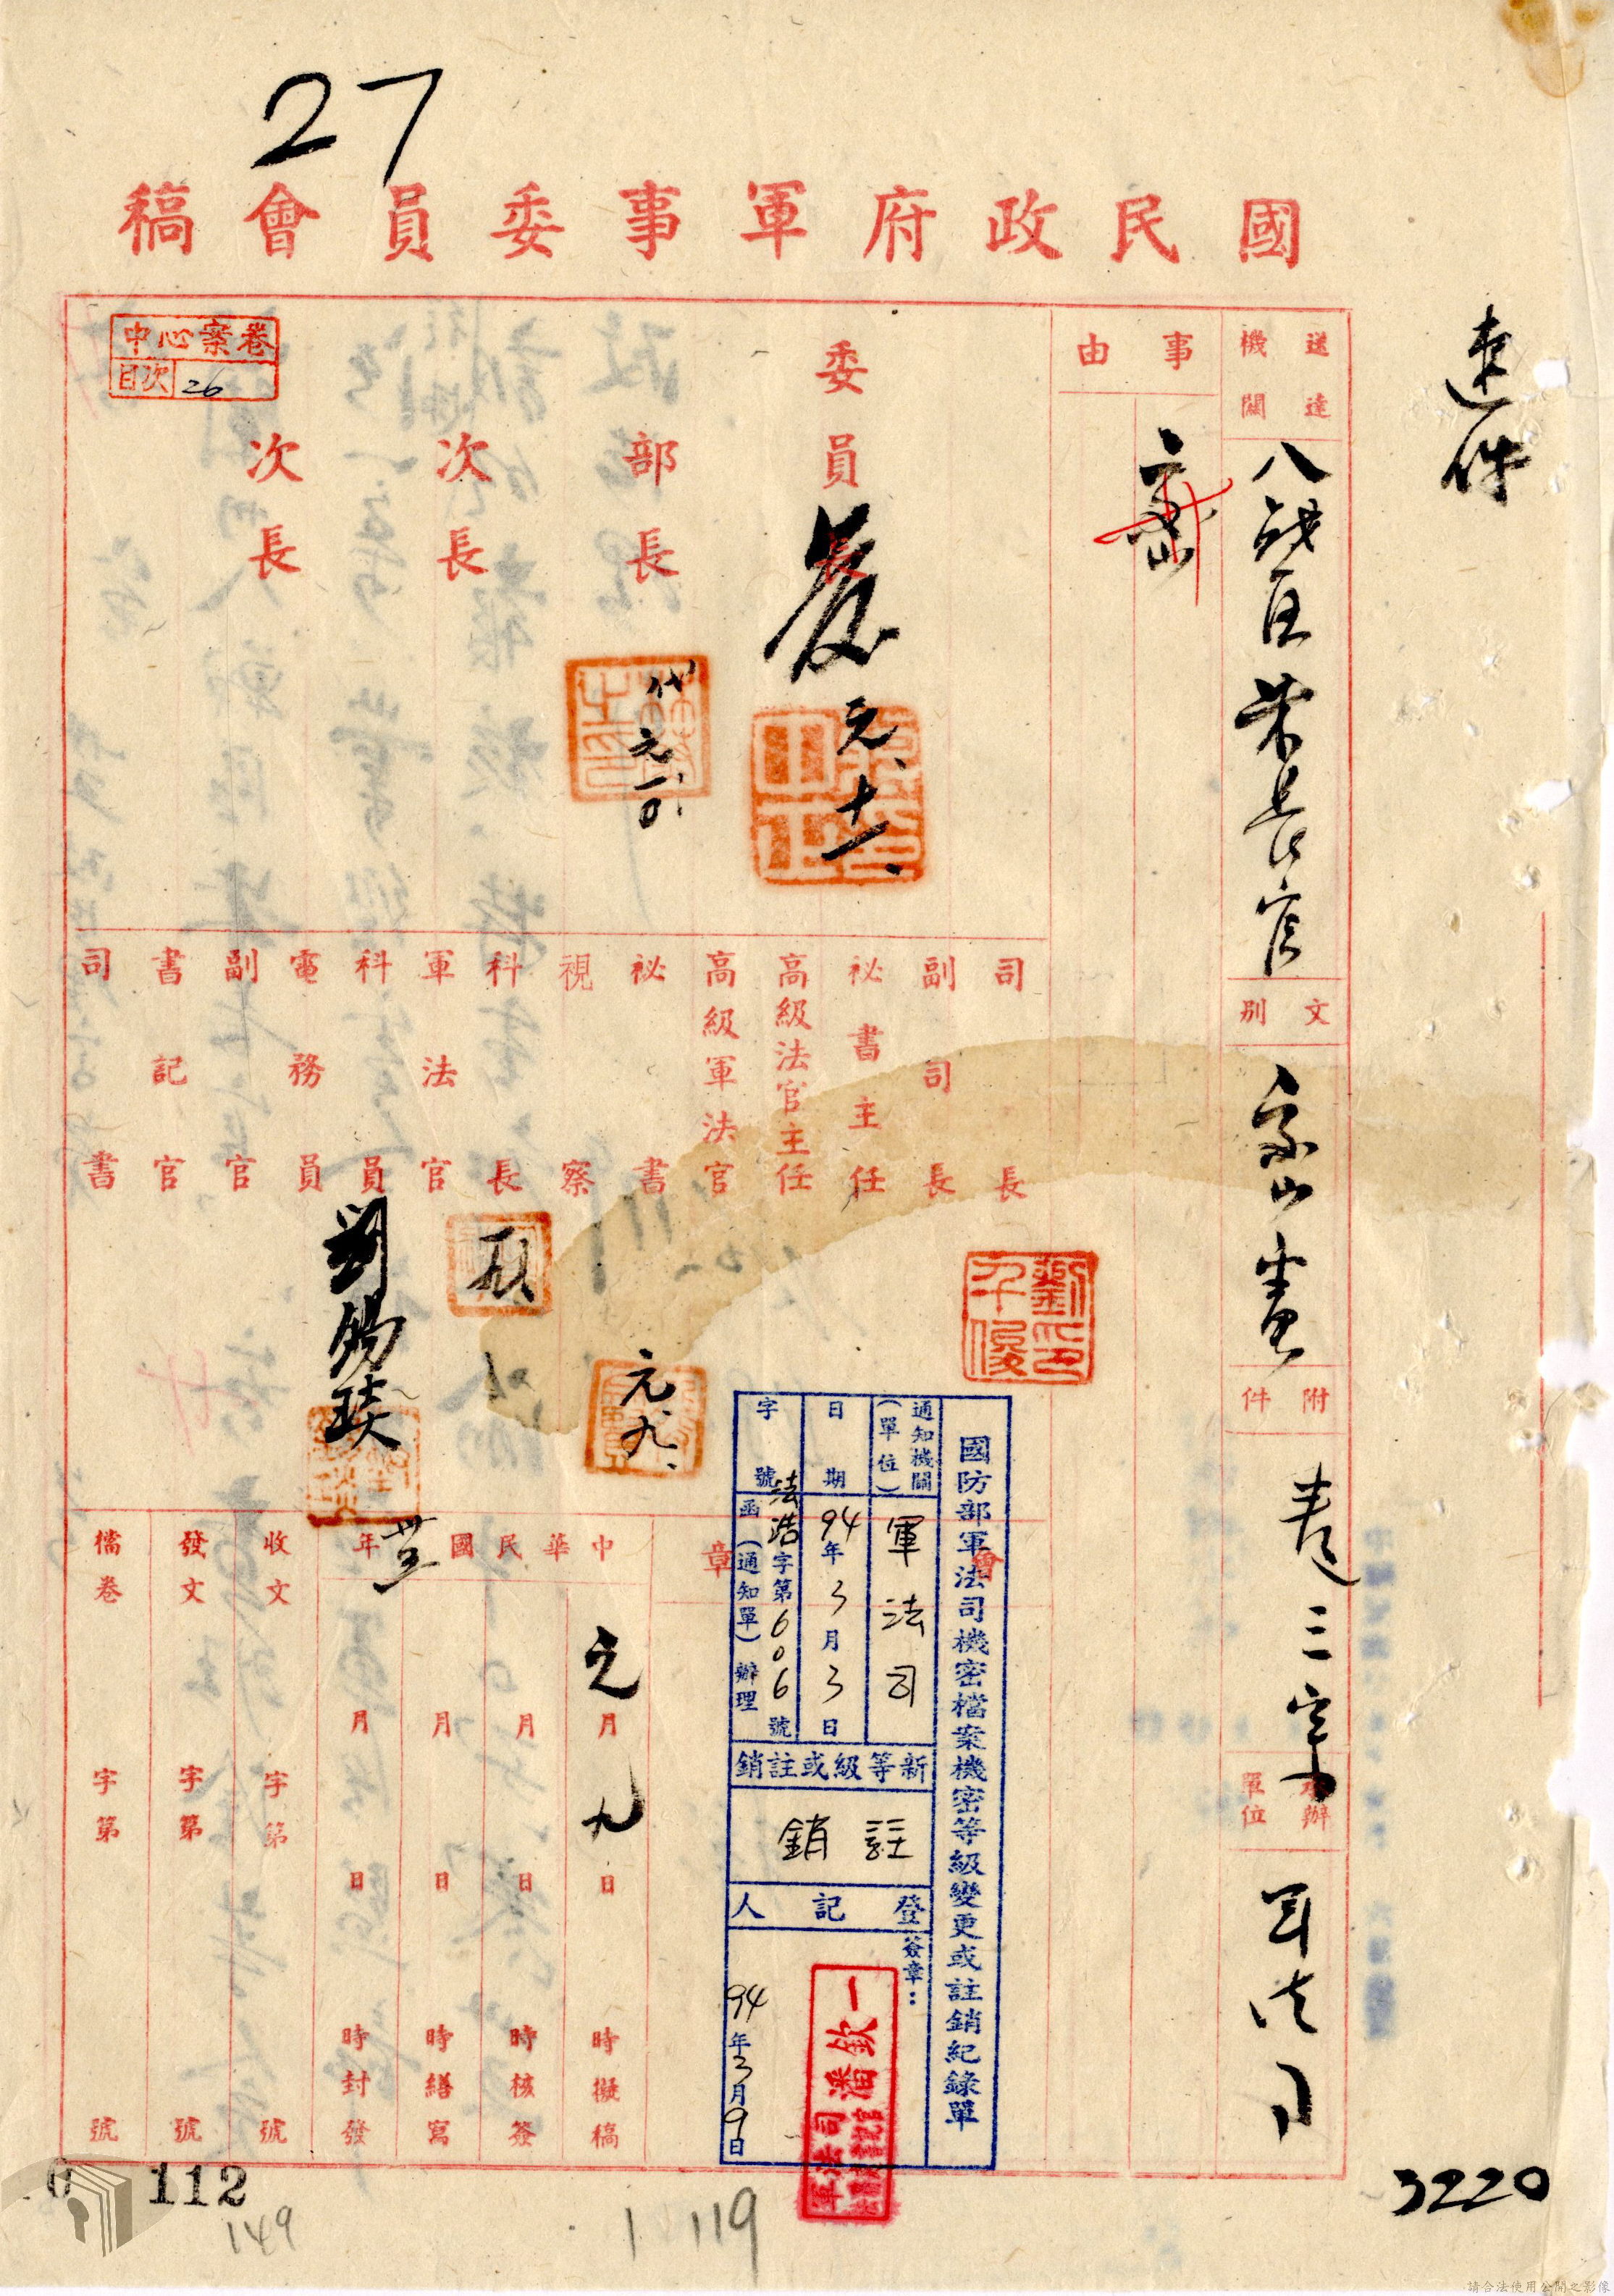 27
國民政府軍事委員會稿
速件
送達機關
八戰區朱長官
文別
密
附件
表三字
承辦單位
軍法司
事由
密
委員長
元、十一、
部長
代
元、一0、
次長
次長
中心案卷
目次 26
司長
副司長
秘書主任
高級法官主任
高級軍法官
秘書
視察
科長
軍法官
科員
電務員
副官
書記官
司書
劉千俊印
元、九、
劉錫琰
會章
中華民國卅五年
元月九日時擬稿
月日時核簽
月日時繕寫
月日時封發
收文字第號
發文字第號
檔卷字第號
國防部軍法司機密檔案機密等級變更或註銷紀錄單
通知機關(單位)
軍法司
日期
94年3月3日
字號
法浩字第606號
函(通知單)辦理
新等級或註銷
註銷
登記人
簽章：
一欽潘
軍法司
94年3月9日
0 112
149
1 119
3220
請合法使用公開之影像